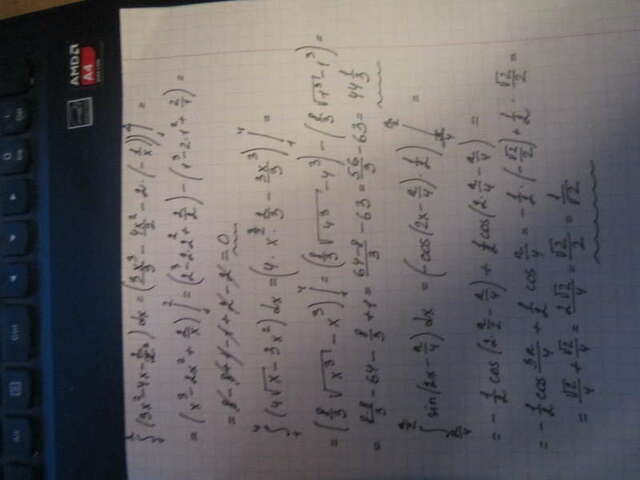 Alt
Ctrl
AMD
A4
∫₁² (3x² - 4x - 2/x²) dx = (3x³/3 - 4x²/2 - 2·(-1/x)) |₁² =
= (x³ - 2x² + 2/x) |₁² = (2³ - 2·2² + 2/2) - (1³ - 2·1² + 2/1) =
= 0
∫₁⁴ (4√x - 3x²) dx = (4·x^(3/2)·2/3 - 3x³/3) |₁⁴ =
= (8/3 √x³ - x³) |₁⁴ = (8/3 √4³ - 4³) - (8/3 √1³ - 1³) =
= 8·8/3 - 64 - 8/3 + 1 = 64-8/3 - 63 = 56/3 - 63 = 44 1/3
∫ sin(2x - π/4) dx = (-cos(2x - π/4)·1/2) | =
= -1/2 cos(2·π/2 - π/4) + 1/2 cos(2·π/4 - π/4) =
= -1/2 cos 3π/4 + 1/2 cos π/4 = -1/2·(-√2/2) + 1/2·√2/2 =
= √2/4 + √2/4 = 2√2/4 = √2/2 = 1/√2